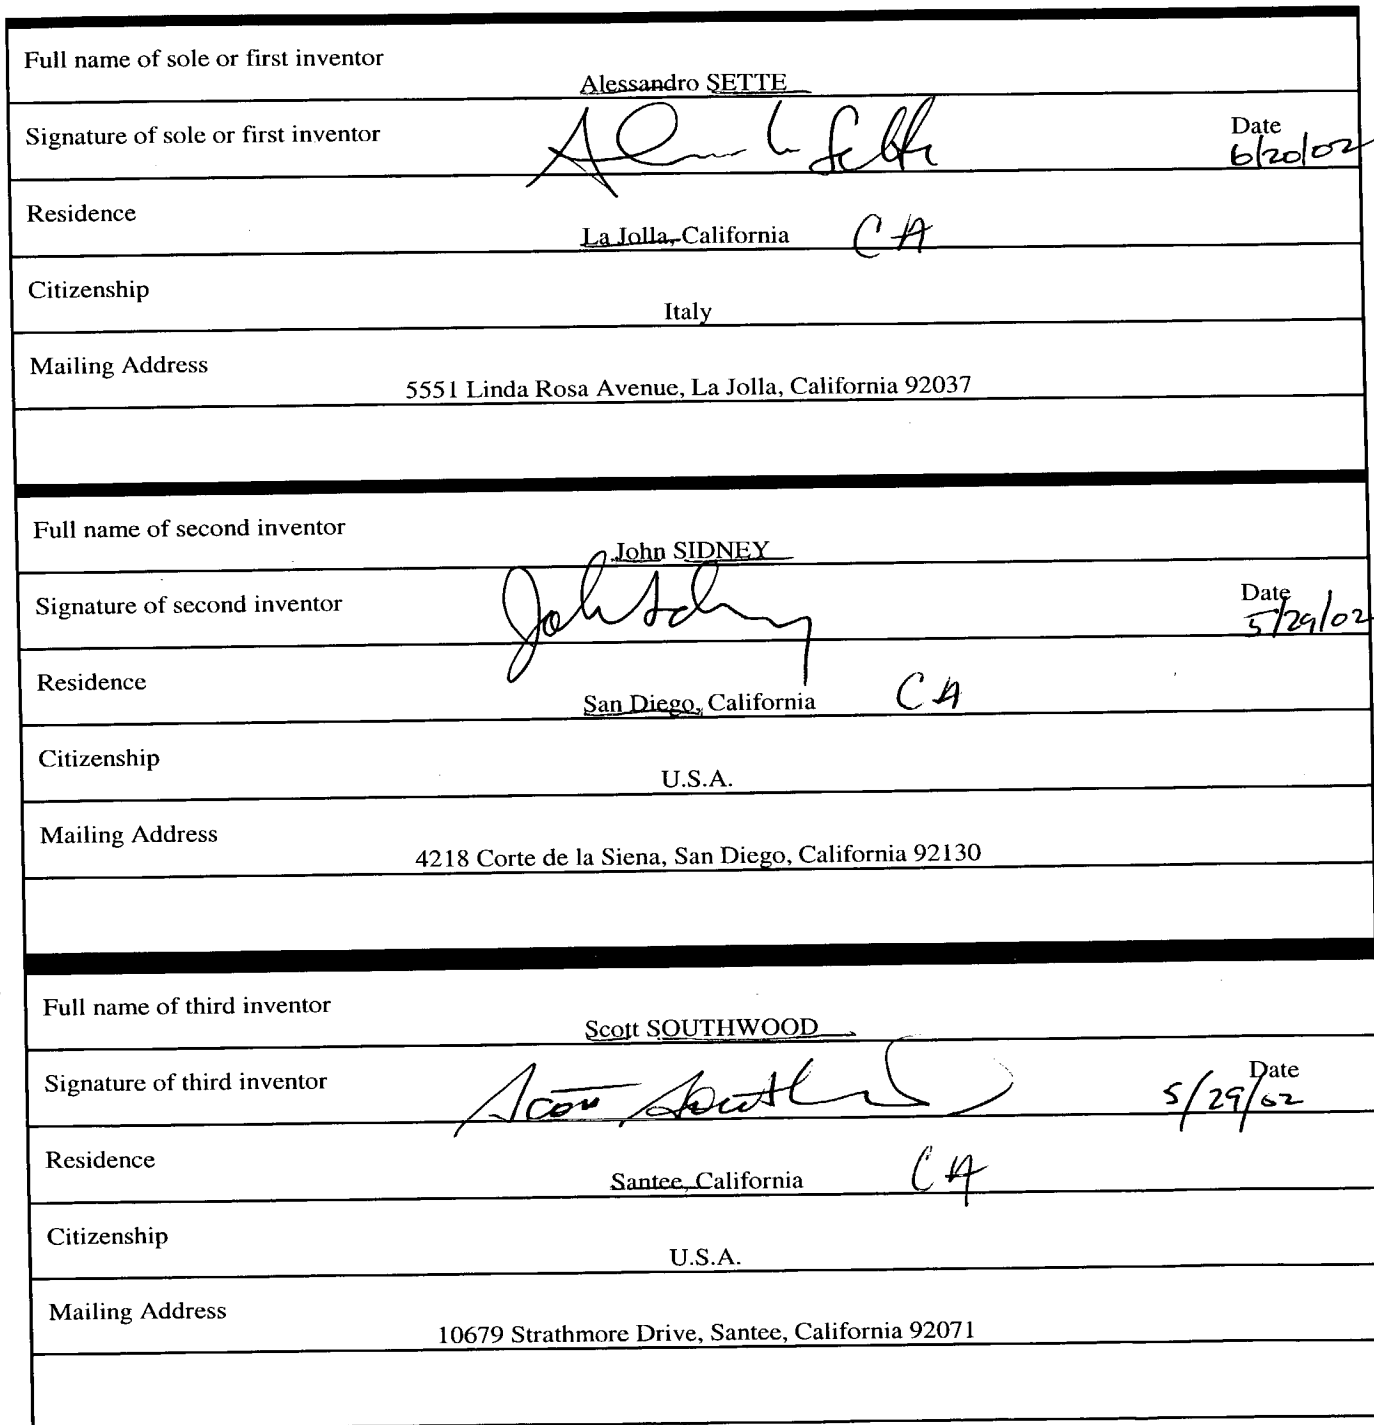 Full name of sole or first inventor
Alessandro SETTE
Signature of sole or first inventor
Date
6/20/02
Residence
La Jolla, California CA
Citizenship
Italy
Mailing Address
5551 Linda Rosa Avenue, La Jolla, California 92037
Full name of second inventor
John SIDNEY
Signature of second inventor
Date
5/29/02
Residence
San Diego, California CA
Citizenship
U.S.A.
Mailing Address
4218 Corte de la Siena, San Diego, California 92130
Full name of third inventor
Scott SOUTHWOOD
Signature of third inventor
Scott
Date
5/29/02
Residence
Santee, California CA
Citizenship
U.S.A.
Mailing Address
10679 Strathmore Drive, Santee, California 92071